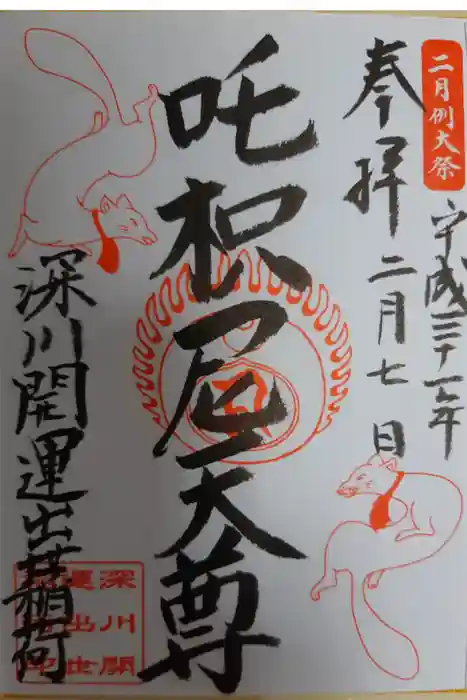 二月例大祭
平成三十一年
奉拝 二月七日
吒枳尼天尊
深川開運出世稲荷
深川開
運出世